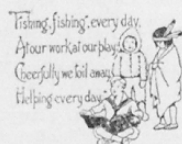 Fishing, fishing, every day,
At our work, at our play;
Cheerfully we toil away,
Helping every day.